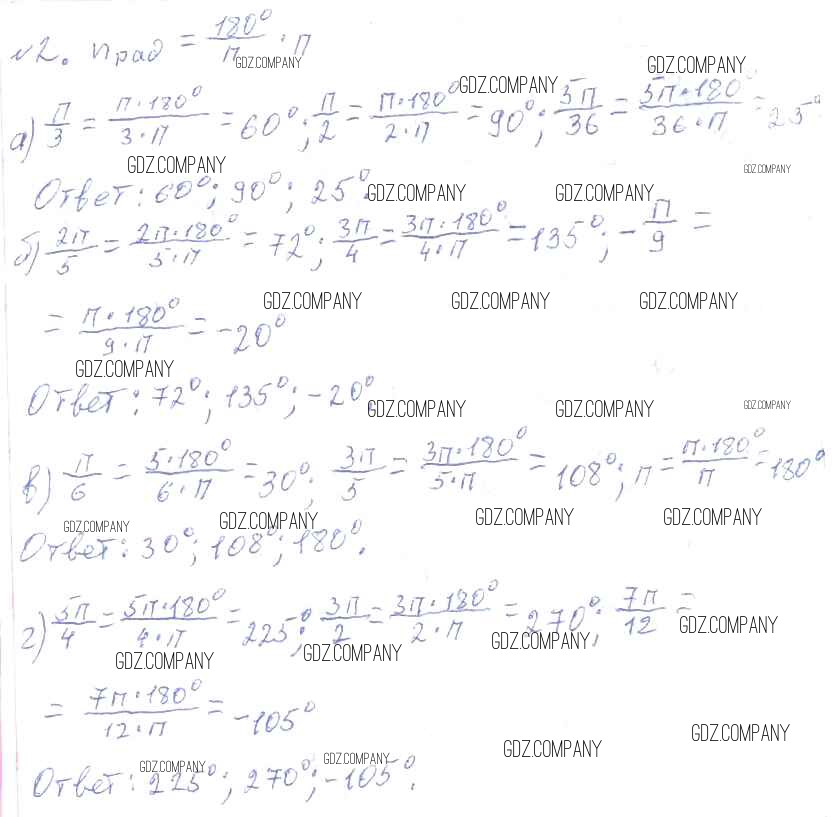 №2. n рад = 180°/π · n
GDZ.COMPANY
GDZ.COMPANY GDZ.COMPANY
а) π/3 = π·180°/3·π = 60°; π/2 = π·180°/2·π = 90°; 5π/36 = 5π·180°/36·π = 25°
GDZ.COMPANY GDZ.COMPANY
Ответ: 60°; 90°; 25°.
GDZ.COMPANY GDZ.COMPANY
б) 2π/5 = 2π·180°/5·π = 72°; 3π/4 = 3π·180°/4·π = 135°; -π/9 =
GDZ.COMPANY GDZ.COMPANY GDZ.COMPANY
= π·180°/9·π = -20°
GDZ.COMPANY
Ответ: 72°; 135°; -20°.
GDZ.COMPANY GDZ.COMPANY GDZ.COMPANY
в) π/6 = 5·180°/6·π = 30°; 3π/5 = 3π·180°/5·π = 108°; π = π·180°/π = 180°
GDZ.COMPANY GDZ.COMPANY GDZ.COMPANY GDZ.COMPANY
Ответ: 30°; 108°; 180°.
г) 5π/4 = 5π·180°/4·π = 225°; 3π/2 = 3π·180°/2·π = 270°; 7π/12 =
GDZ.COMPANY GDZ.COMPANY GDZ.COMPANY GDZ.COMPANY
= 7π·180°/12·π = -105°
GDZ.COMPANY GDZ.COMPANY GDZ.COMPANY GDZ.COMPANY
Ответ: 225°; 270°; -105°.